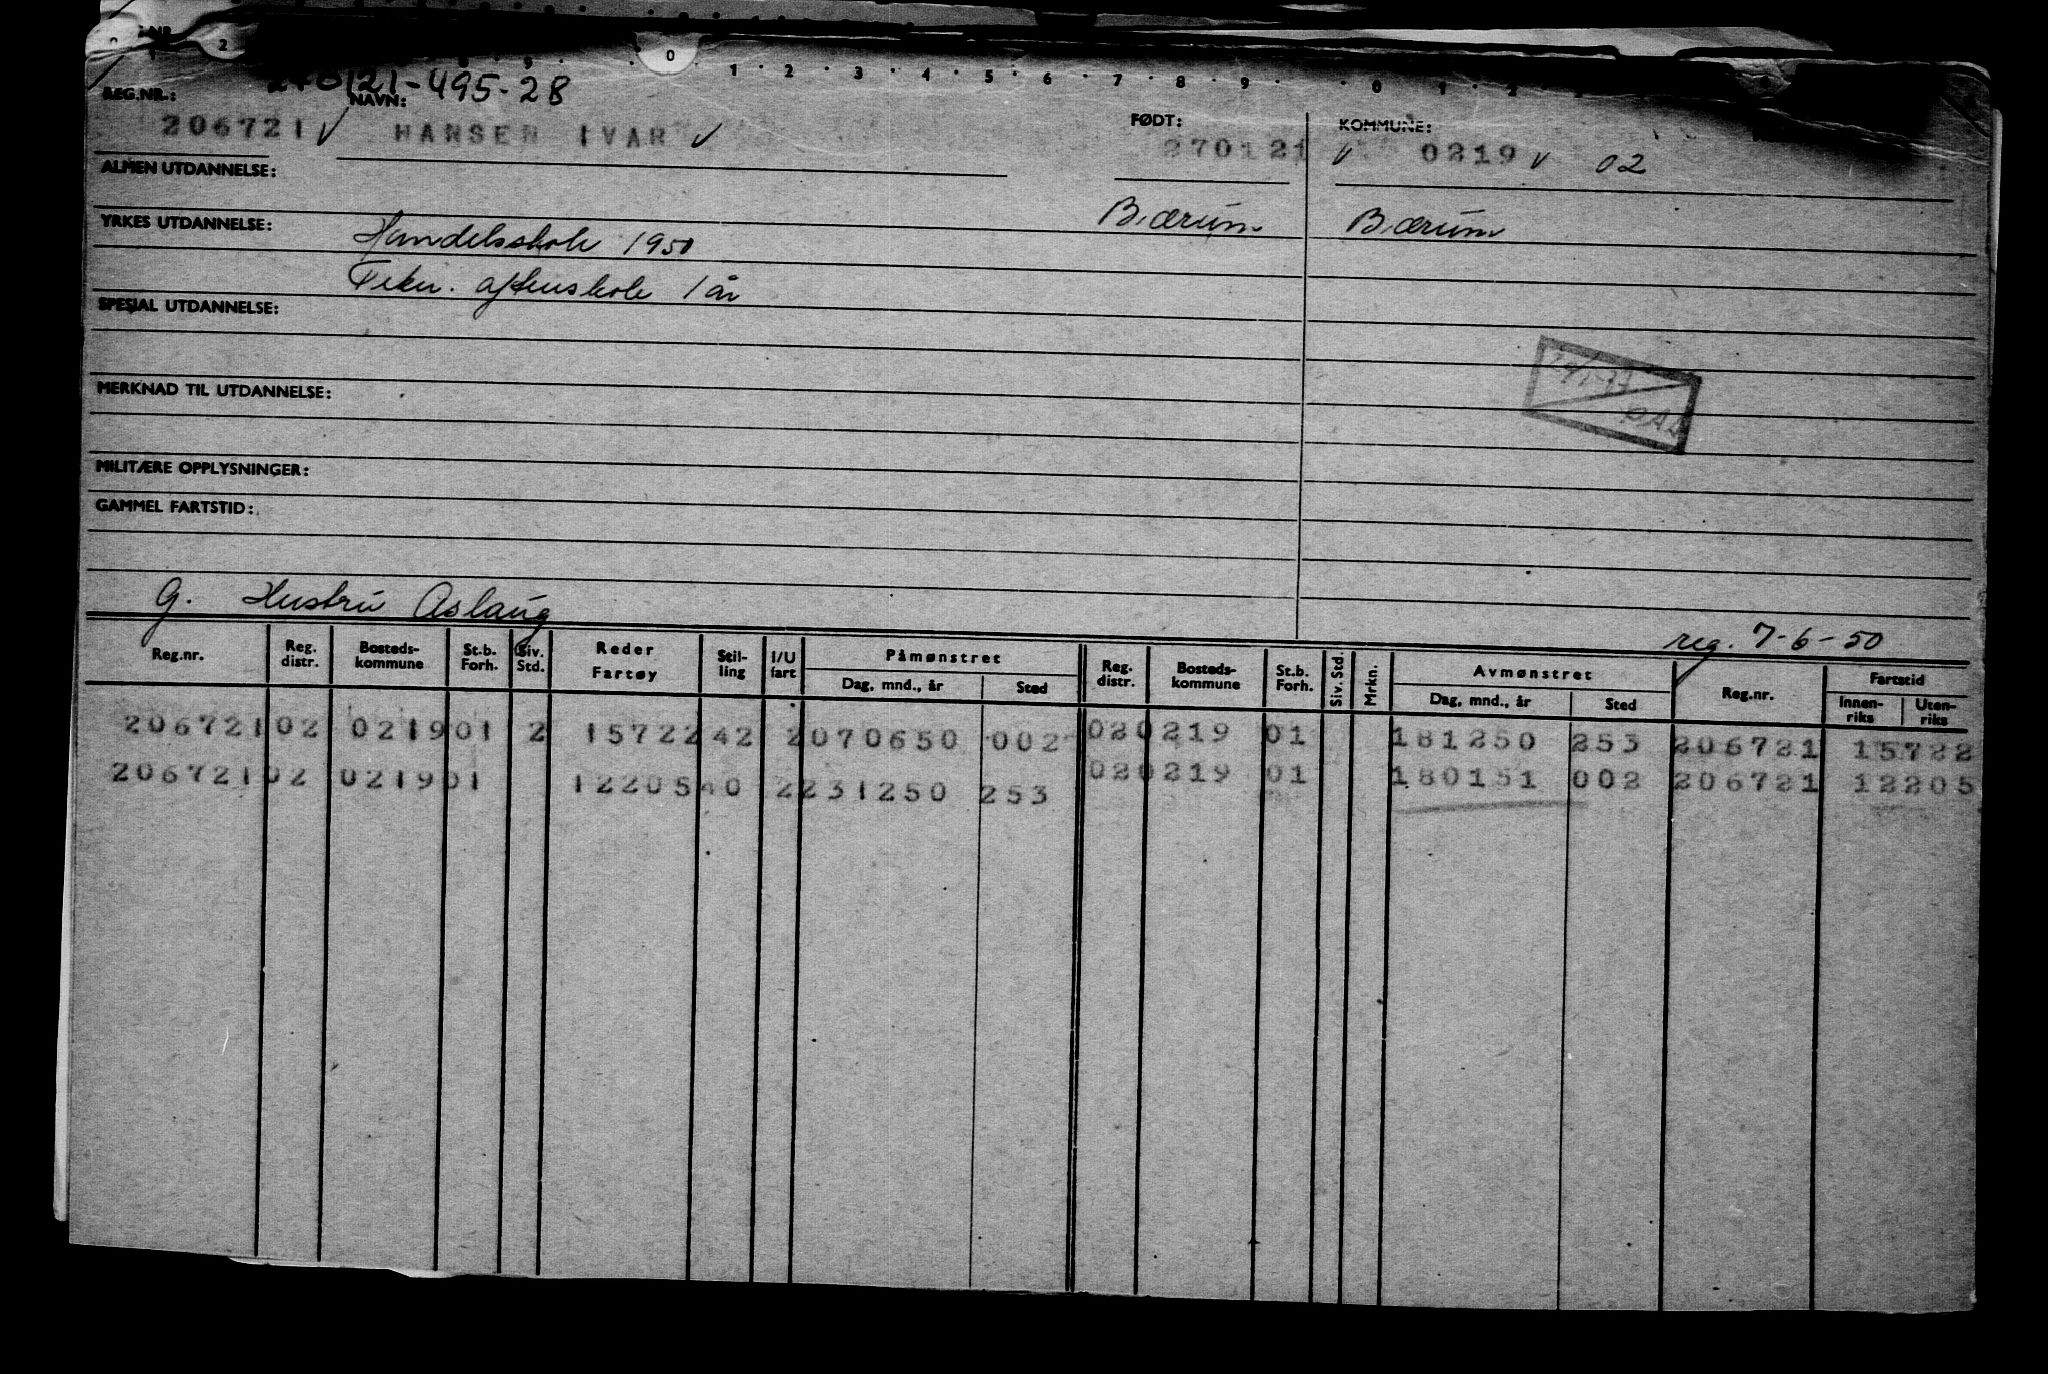 2 0 1 2 3 4 5 6 7 8 9 0 1 2
270121-495-28
REG.NR.: NAVN: FØDT: KOMMUNE:
206721 ✓ HANSEN IVAR ✓ 270121 ✓ 0219 ✓ 02
ALMEN UTDANNELSE:
Bærum Bærum
YRKES UTDANNELSE: Handelsskole 1950
Tekn. aftenskole 1 år
SPESIAL UTDANNELSE:
MERKNAD TIL UTDANNELSE:
MILITÆRE OPPLYSNINGER:
GAMMEL FARTSTID:
G. Hustru Aslaug
reg. 7-6-50
Reg.nr. Reg. distr. Bosteds-kommune St.b. Forh. Siv. Std. Reder Fartøy Stil-ling I/U fart Påmønstret Dag, mnd., år Sted Reg. distr. Bosteds-kommune St.b. Forh. Siv. Std. Mrkn. Avmønstret Dag, mnd., år Sted Reg.nr. Fartstid Innen-riks Uten-riks
206721 02 0219 01 2 15722 42 2 070650 002 02 0219 01 181250 253 206721 15722
206721 02 0219 01 12205 40 2 231250 253 02 0219 01 180151 002 206721 12205